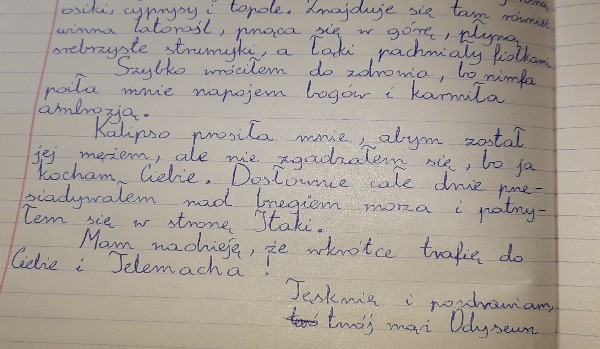 osiki, cyprysy i topole. Znajduje się tam również
winna latorośl, pnąca się w górę, płyną
srebrzyste strumyki, a łąki pachniały fiołkami.
Szybko wróciłem do zdrowia, bo nimfa
poiła mnie napojem bogów i karmiła
ambrozją.
Kalipso prosiła mnie, abym został
jej mężem, ale nie zgadzałem się, bo ja
kocham Ciebie. Dosłownie całe dnie prze-
siadywałem nad brzegiem morza i patrzy-
łem się w stronę Itaki.
Mam nadzieję, że wkrótce trafię do
Ciebie i Telemacha!
Tęsknię i pozdrawiam,
twój mąż Odyseusz